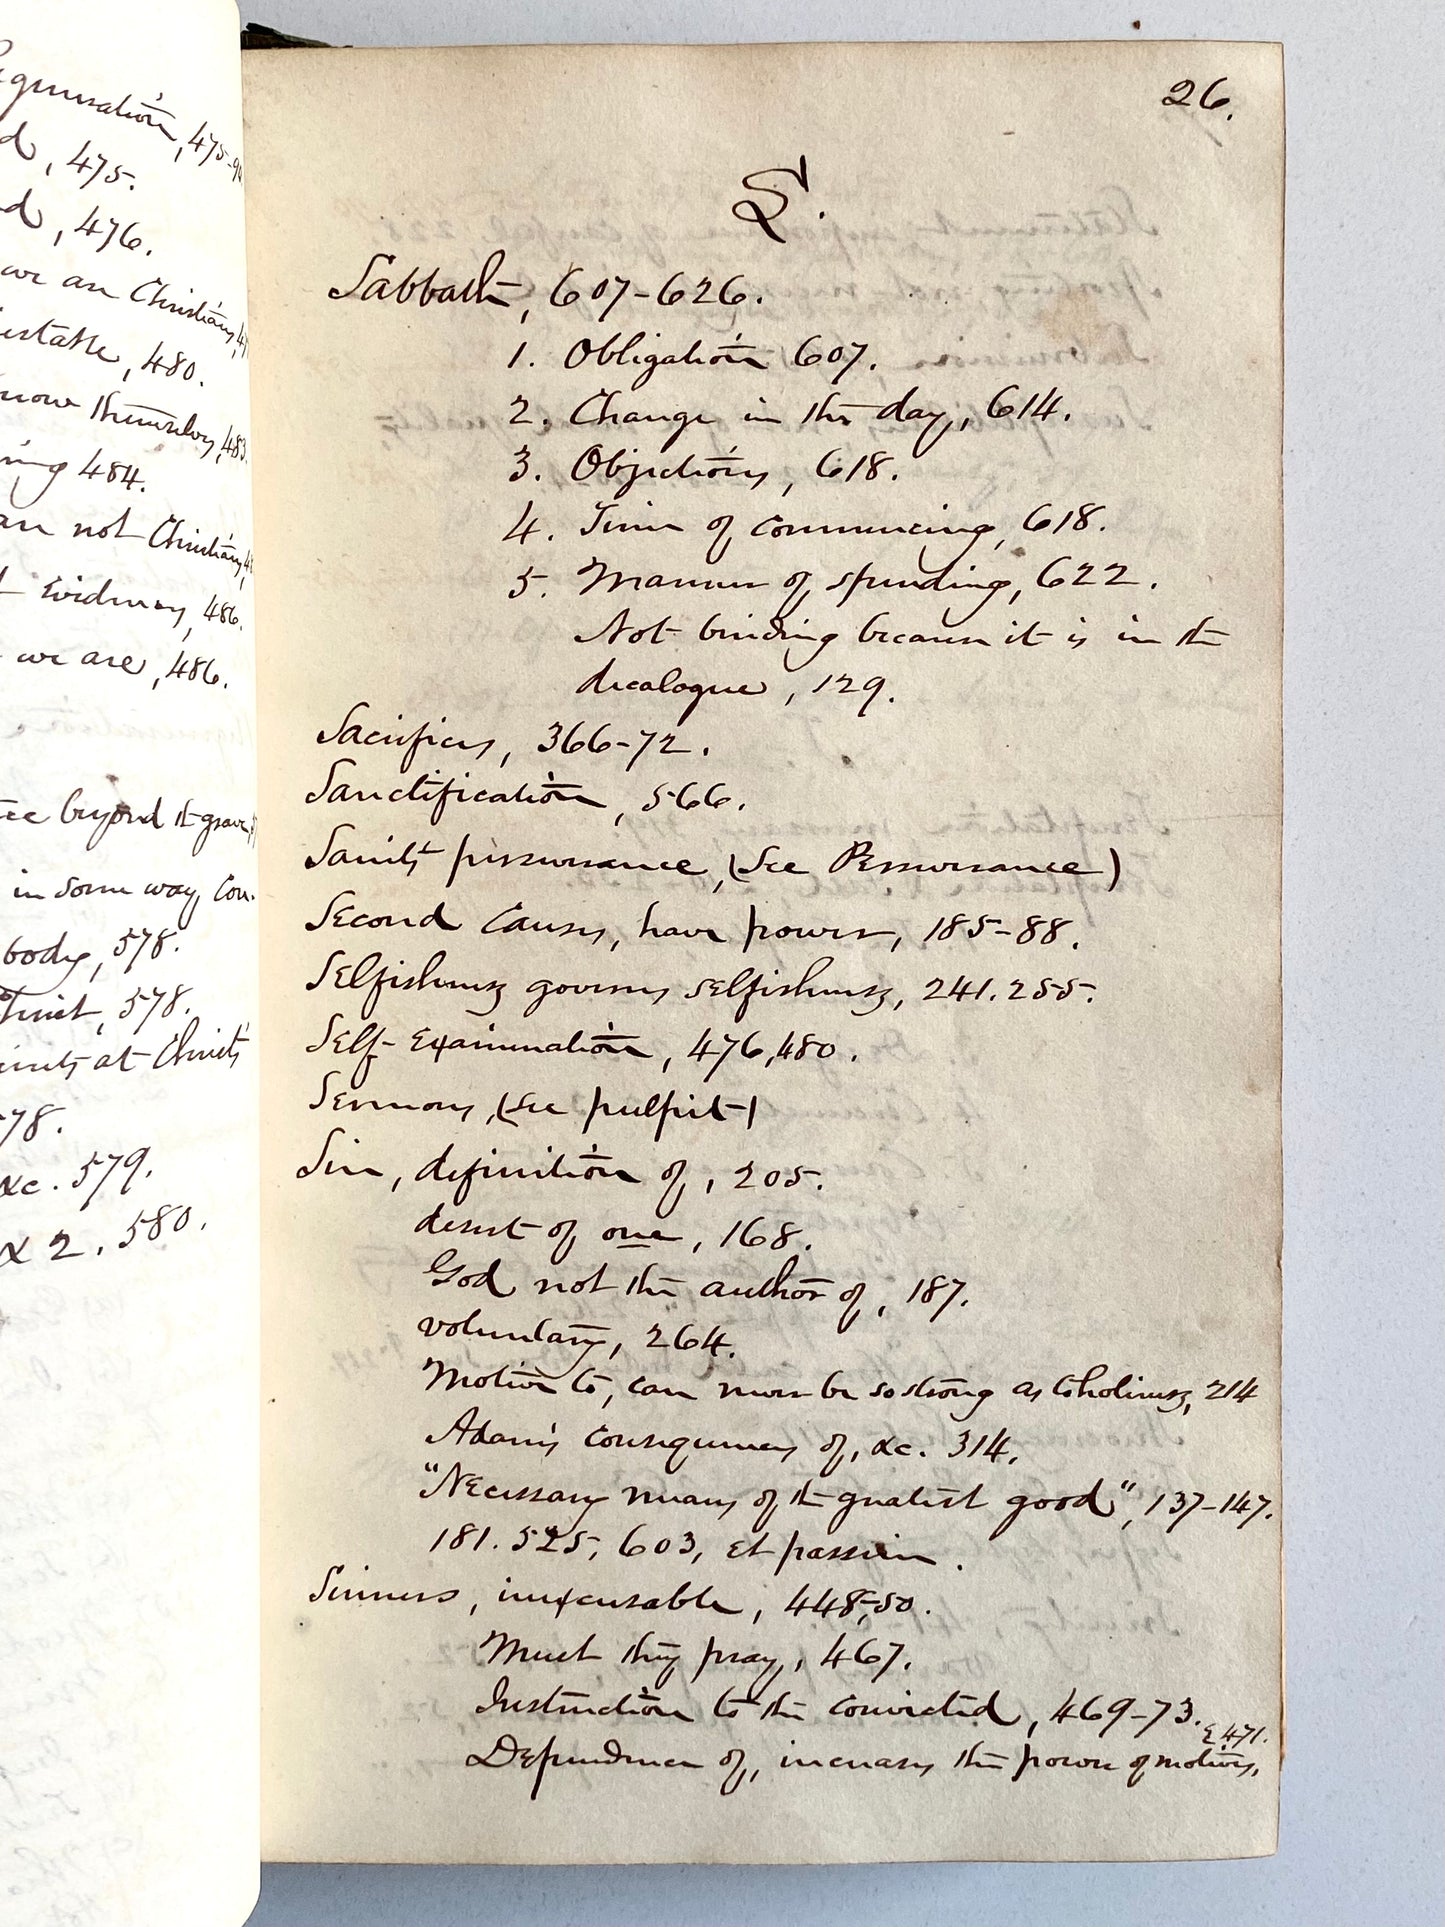 Regeneration, 475-9
d, 475.
d, 476.
we are Christians, 4
480.
know themselves, 483.
ing 484.
are not Christians, 48
Evidences, 486.
we are, 486.
beyond th grave,
in some way, con-
body, 578.
578.
at Christ's
78.
&c. 579.
& 2. 580.
26.
S.
Sabbath, 607-626.
1. Obligation 607.
2. Change in the day, 614.
3. Objections, 618.
4. Time of commencing, 618.
5. Manner of spending, 622.
Not binding because it is in th
decalogue, 129.
Sacrifices, 366-72.
Sanctification, 566.
Saints' perseverance, (See Perseverance)
Second Causes, have power, 185-88.
Selfishness governs selfishness, 241. 255.
Self-Examination, 476, 480.
Sermons, (See pulpit)
Sin, definition of, 205.
desert of one, 168.
God not the author of, 187.
voluntary, 264.
Motive to, can never be so strong as to holiness, 214
Adam's consequences of, &c. 314.
"Necessary means of th greatest good", 137-147.
181. 525, 603, et passim.
Sinners, inexcusable, 448-50.
Must they pray, 467.
Instruction to the convicted, 469-73.
& 471.
Dependence of, increases the power of motives,